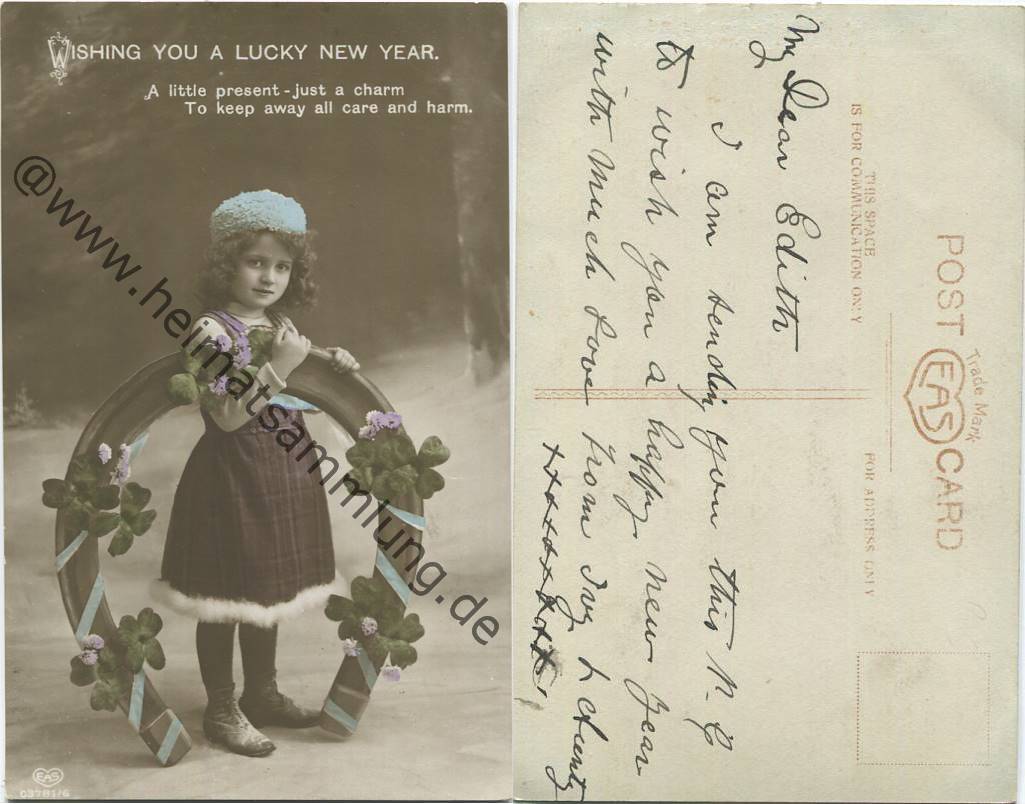 WISHING YOU A LUCKY NEW YEAR.
A little present - just a charm
To keep away all care and harm.
@www.heimatsammlung.de
EAS
03781/6
POST CARD
Trade Mark
EAS
THIS SPACE
IS FOR COMMUNICATION ONLY
FOR ADDRESS ONLY
My Dear Edith
I am sending you this P.C
to wish you a happy new year
with much love from Ivy & Aunty
xxxxxxxxx